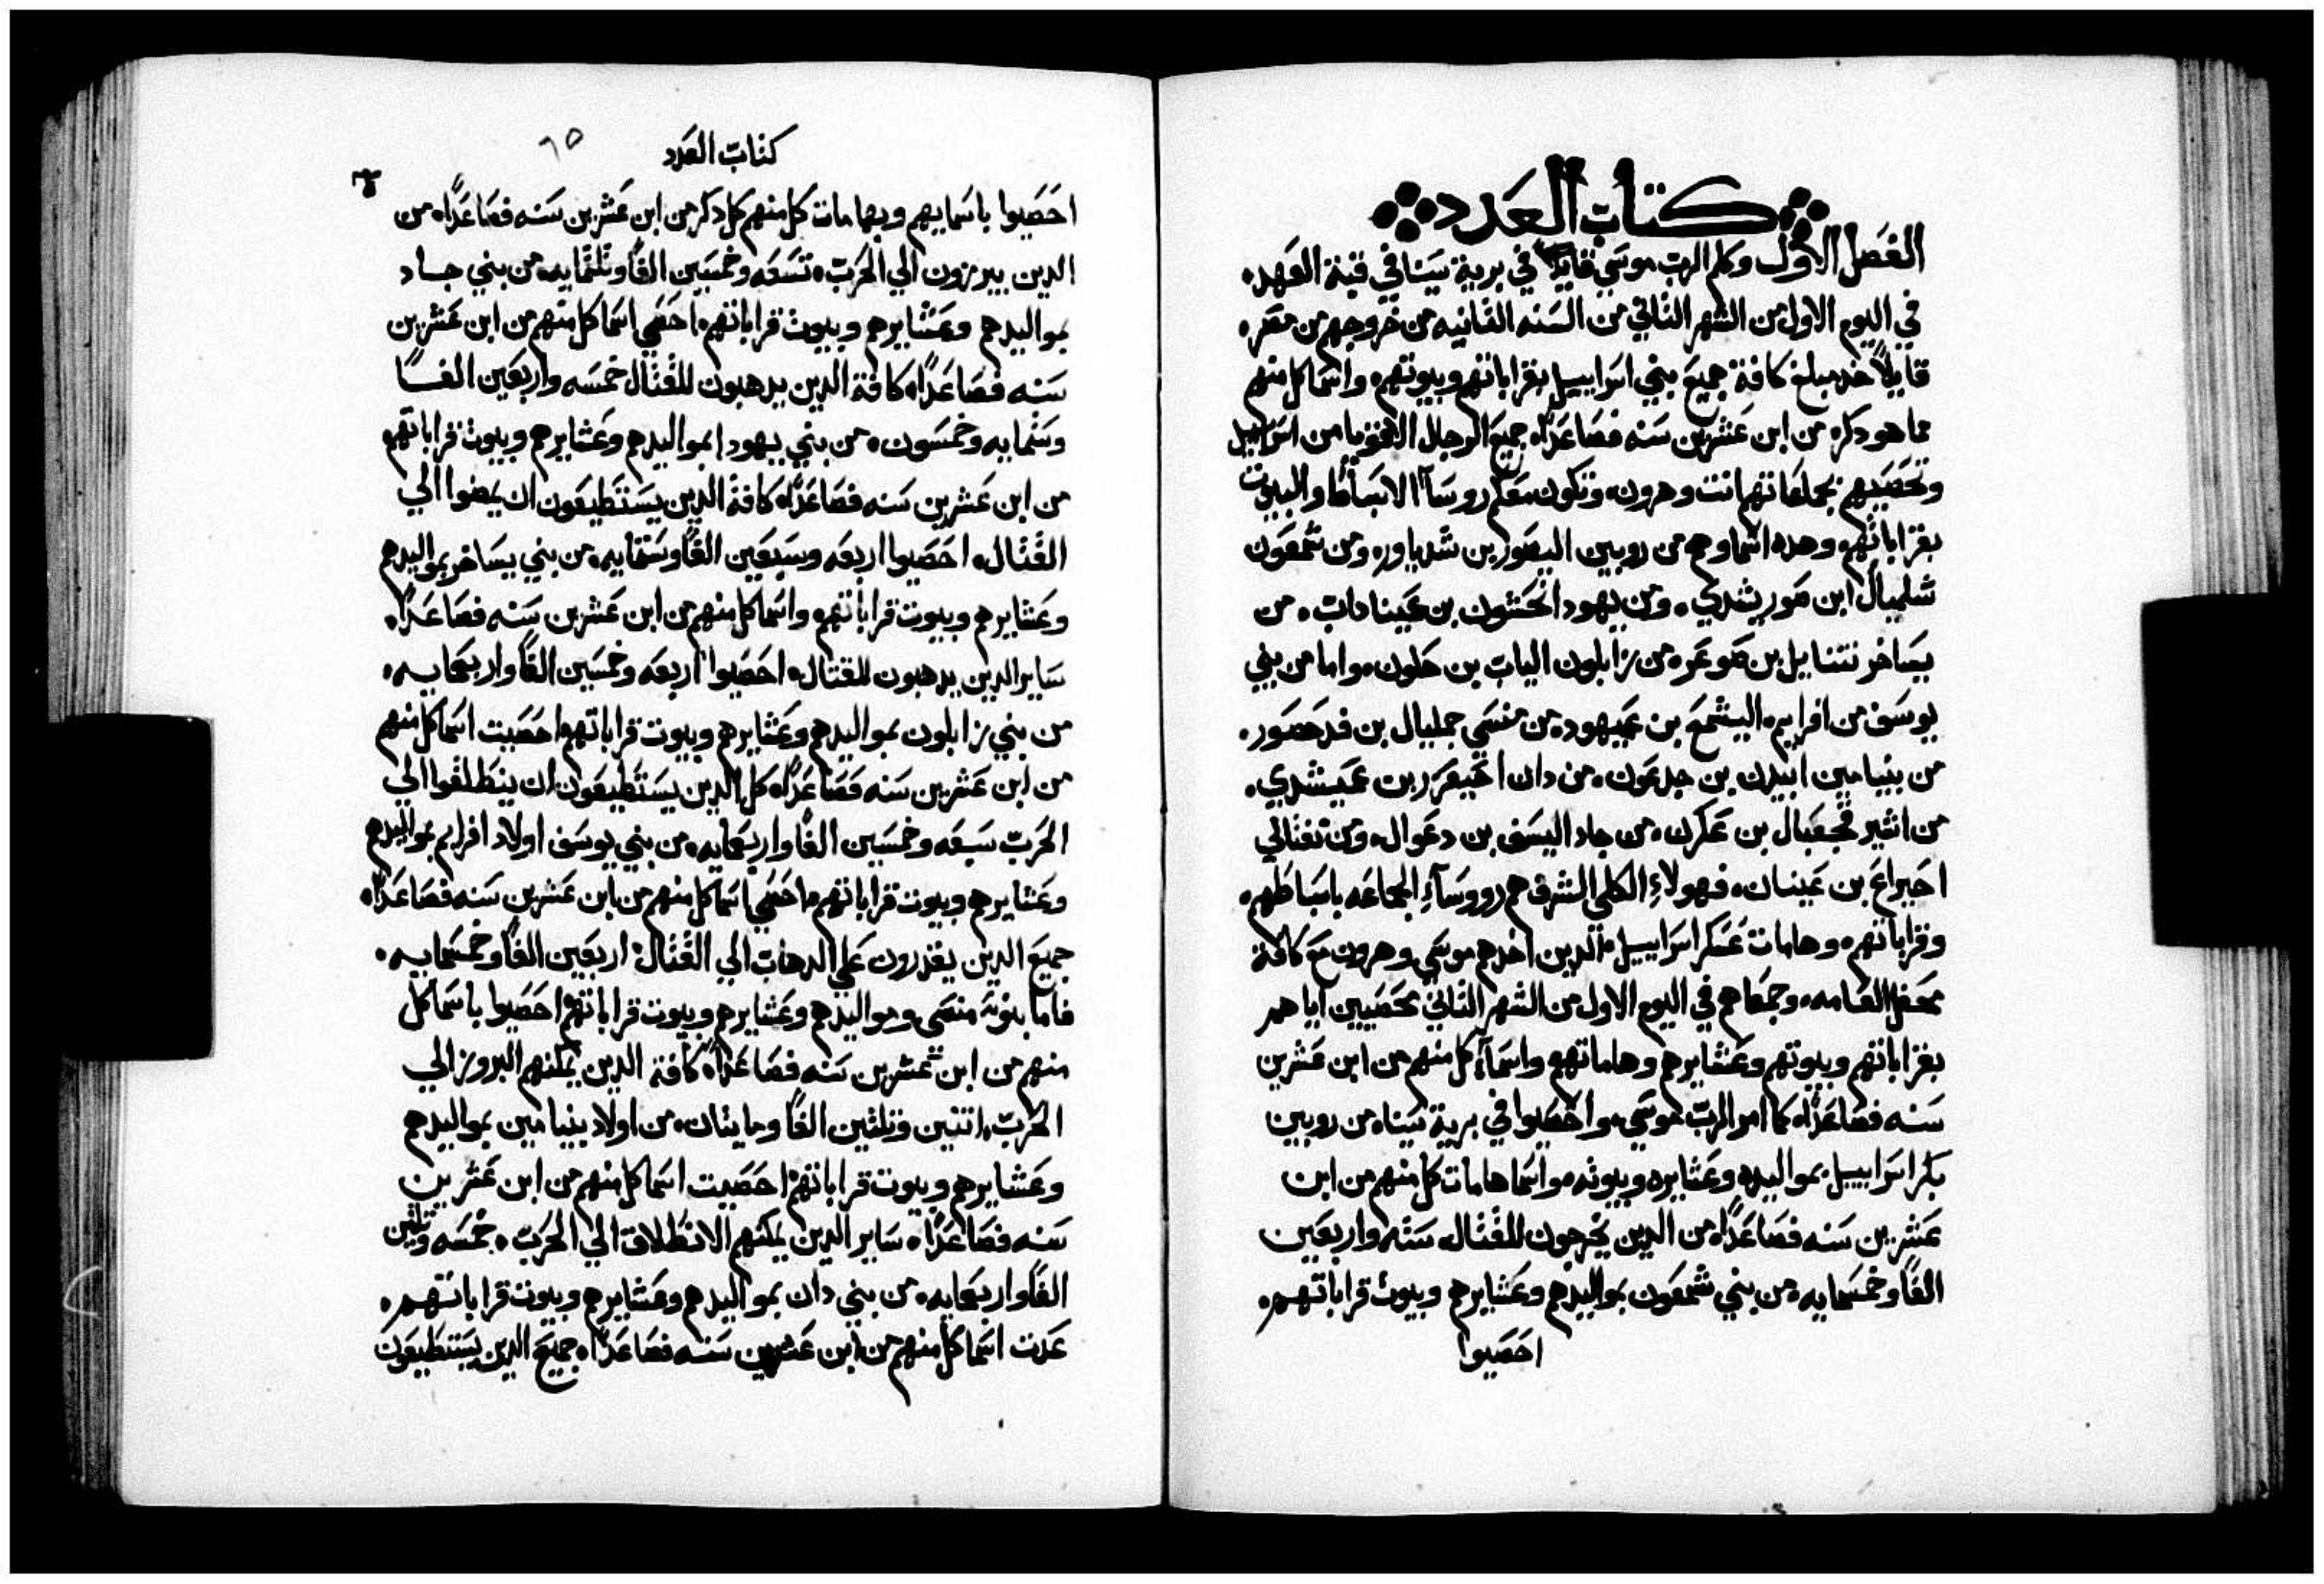 كتاب العدد
الفصل الاول وكلم الرب موسي قايلا في برية سينا في قبة العهد.
في اليوم الاول من الشهر التاني من السنه التانيه من خروجهم من مصر.
قايلاً خد مبلغ كافة جميع بني اسراييل بقراباتهم وبيوتهم. واسما كل منهم
مما هو دكر. من ابن عشرين سنه فصاعداً. جميع الرجال الاقويا من اسراييل
وتحصيهم بجماعاتهم انت وهرون. وتكون معكم روسآ الاسباط والبيوت
بقراباتهم. وهده اسماوهم من روبين اليصور بن شدياور. ومن شمعون
شلميال ابن صوريشدي. ومن يهودا نحشون بن عيناداب. من
يصاخر نتناييل بن صوعر. من زابلون الياب بن حلون. واما من بني
يوسف من افرايم. اليشمع بن عميهود. من منسي جمليال بن فدحصور.
من بنيامين ابيدن بن جدعون. من دان اخيعزر بن عميشدي.
من اشير فجعيال بن عكرن. من جاد اليسف بن دعوال. ومن نفتالي
احيراع بن عينان. فهولاءِ الكلي الشرف هم رووسآءِ الجماعه باسباطهم.
وقراباتهم. وهامات عسكر اسراييل. الدين اخدهم موسي وهرون مع كافة
محفل العامه. وجمعاهم في اليوم الاول من الشهر التاني محصيين اياهم
بقراباتهم وبيوتهم وعشايرهم وهاماتهم واسمآء كل منهم من ابن عشرين
سنه فصاعداً. كما امر الرب موسي. واحصيوا في برية سينا. من روبين
بكر اسراييل بمواليده وعشايره وبيوته. واسما هامات كل منهم من ابن
عشرين سنه فصاعداً. من الدين يخرجون للقتال. سته واربعين
الفاً وخمسمايه. من بني شمعون بمواليدهم وعشايرهم وبيوت قراباتهم.
احصيوا
كتاب العدد
٦٥
احصيوا باسمايهم وبهامات كل منهم كل دكر من ابن عشرين سنه فصاعداً. من
الدين يبرزون الي الحرب. تسعه وخمسين الفاً وتلتمايه. من بني جاد
بمواليدهم وعشايرهم وبيوت قراباتهم. احصي اسما كل منهم من ابن عشرين
سنه فصاعداً. كافة الدين يدهبون للقتال خمسه واربعين الفاً
وستمايه وخمسون. من بني يهودا بمواليدهم وعشايرهم وبيوت قراباتهم
من ابن عشرين سنه فصاعداً. كافة الدين يستطيعون ان يمضوا الي
القتال. احصيوا اربعه وسبعين الفاً وستمايه. من بني يساخر بمواليدهم
وعشايرهم وبيوت قراباتهم. واسما كل منهم من ابن عشرين سنه فصاعداً.
ساير الدين يدهبون للقتال. احصيوا اربعه وخمسين الفاً واربعمايه.
من بني زابلون بمواليدهم وعشايرهم وبيوت قراباتهم احصيت اسما كل منهم
من ابن عشرين سنه فصاعداً. كل الدين يستطيعون ان ينطلقوا الي
الحرب سبعه وخمسين الفاً واربعمايه. من بني يوسف اولاد افرايم بمواليدهم
وعشايرهم وبيوت قراباتهم. احصي اسما كل منهم من ابن عشرين سنه فصاعداً.
جميع الدين يقدرون علي الدهاب الي القتال. اربعين الفاً وخمسمايه.
فاما بنوته منصى ومواليدهم وعشايرهم وبيوت قراباتهم احصيوا باسما كل
منهم من ابن عشرين سنه فصاعداً كافة الدين يمكنهم البروز الي
الحرب. اتنين وتلتين الفاً ومايتان. من اولاد بنيامين بمواليدهم
وعشايرهم وبيوت قراباتهم احصيت اسما كل منهم من ابن عشرين
سنه فصاعداً. ساير الدين يمكنهم الانطلاق الي الحرب. خمسه وتلتين
الفاً واربعمايه. من بني دان بمواليدهم وعشايرهم وبيوت قراباتهم.
عدت اسما كل منهم من ابن عشرين سنه فصاعداً. جميع الدين يستطيعون